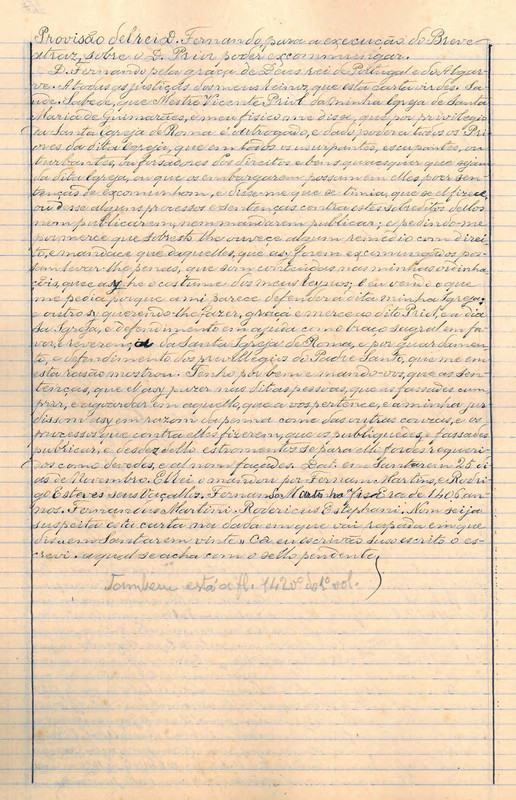 Provisão delrei D. Fernando, para a execução do Breve
atraz, sobre o D. Prior poder excommungar.
D. Fernando pela graça de Deus rei de Portugal e do Algar-
ve. A todas os justiças dos meus reinos, que esta carta virdes. Sa-
ude. Sabede, que Mestre Vicente Priol da minha Igreja de Santa
Maria de Guimarães, e meu fisico me disse, que por privilegio
da Santa Igreja de Roma é outrogado, e dado poder a todos os Pri-
ores da dita Igreja, que em todos os usurpantes, ocupantes, ou
turbantes, ou forsadores dos direitos e bens quaesquer que sejam
da dita Igreja, ou que os embargarem possam em elles poer sen-
tenças de excomunhom, e disse-me que se timia, que se el fizece,
ou desse alguns processos e sentenças contra estes sobreditos dellos
nom publicarem, nem mandarem publicar; e pedindo-me
por merce que sobresto lhe ouvece algum remedio com direi-
to, e mandace que daquelles, que asy forem excomungados pos-
sem levar lhe penas, que som contheudas nas minhas ordinha-
çõis, que asy he o costume dos meus reynos; E eu vendo o que
me pedia, porque a mi parece defender a dita minha Igreja;
e outro sy querendo-lhe fazer, graça e merce ao dito Priol, e a di-
ta Igreja, e defendimento em ajuda como braço sagral em fa-
vor, e reverença da Santa Igreja de Roma, e por guardamen-
to, e defendimento dos previllegios do Padre Santo, que me em
esta rasão mostrou. Tenho por bem e mando-vos, que as sen-
tenças, que el asy puzer nas ditas pessoas, que as fassades cum-
prir, e aguardar em aquello, que a vos pertence, e a minha jur-
dissom asy em razom da penna como das outras couzas, e os
processos que contra elles fizerem, que os publiquedes, e fassades
publicar, e desdes dello estromentos se para elli fordes requeri-
dos como devedes, e al nom façades. Dat. em Santarem 25 di-
as de Novembro. ElRei o mandou por Fernam Martins, e Rodri-
go Esteves seus Vaçallos. Fernam Martinho fez Era de 1406 an-
nos. Fernandus Martini. Rodericus Estephani. Nom seija
suspeito esta carta na dada em que vai rapado em que
diz = em Santarem vinte » Ca eu escrivão suso escrito o es-
crevi. a qual se acha com o sello pendente
Tambem está a fl. 142 vº do 1º vol.